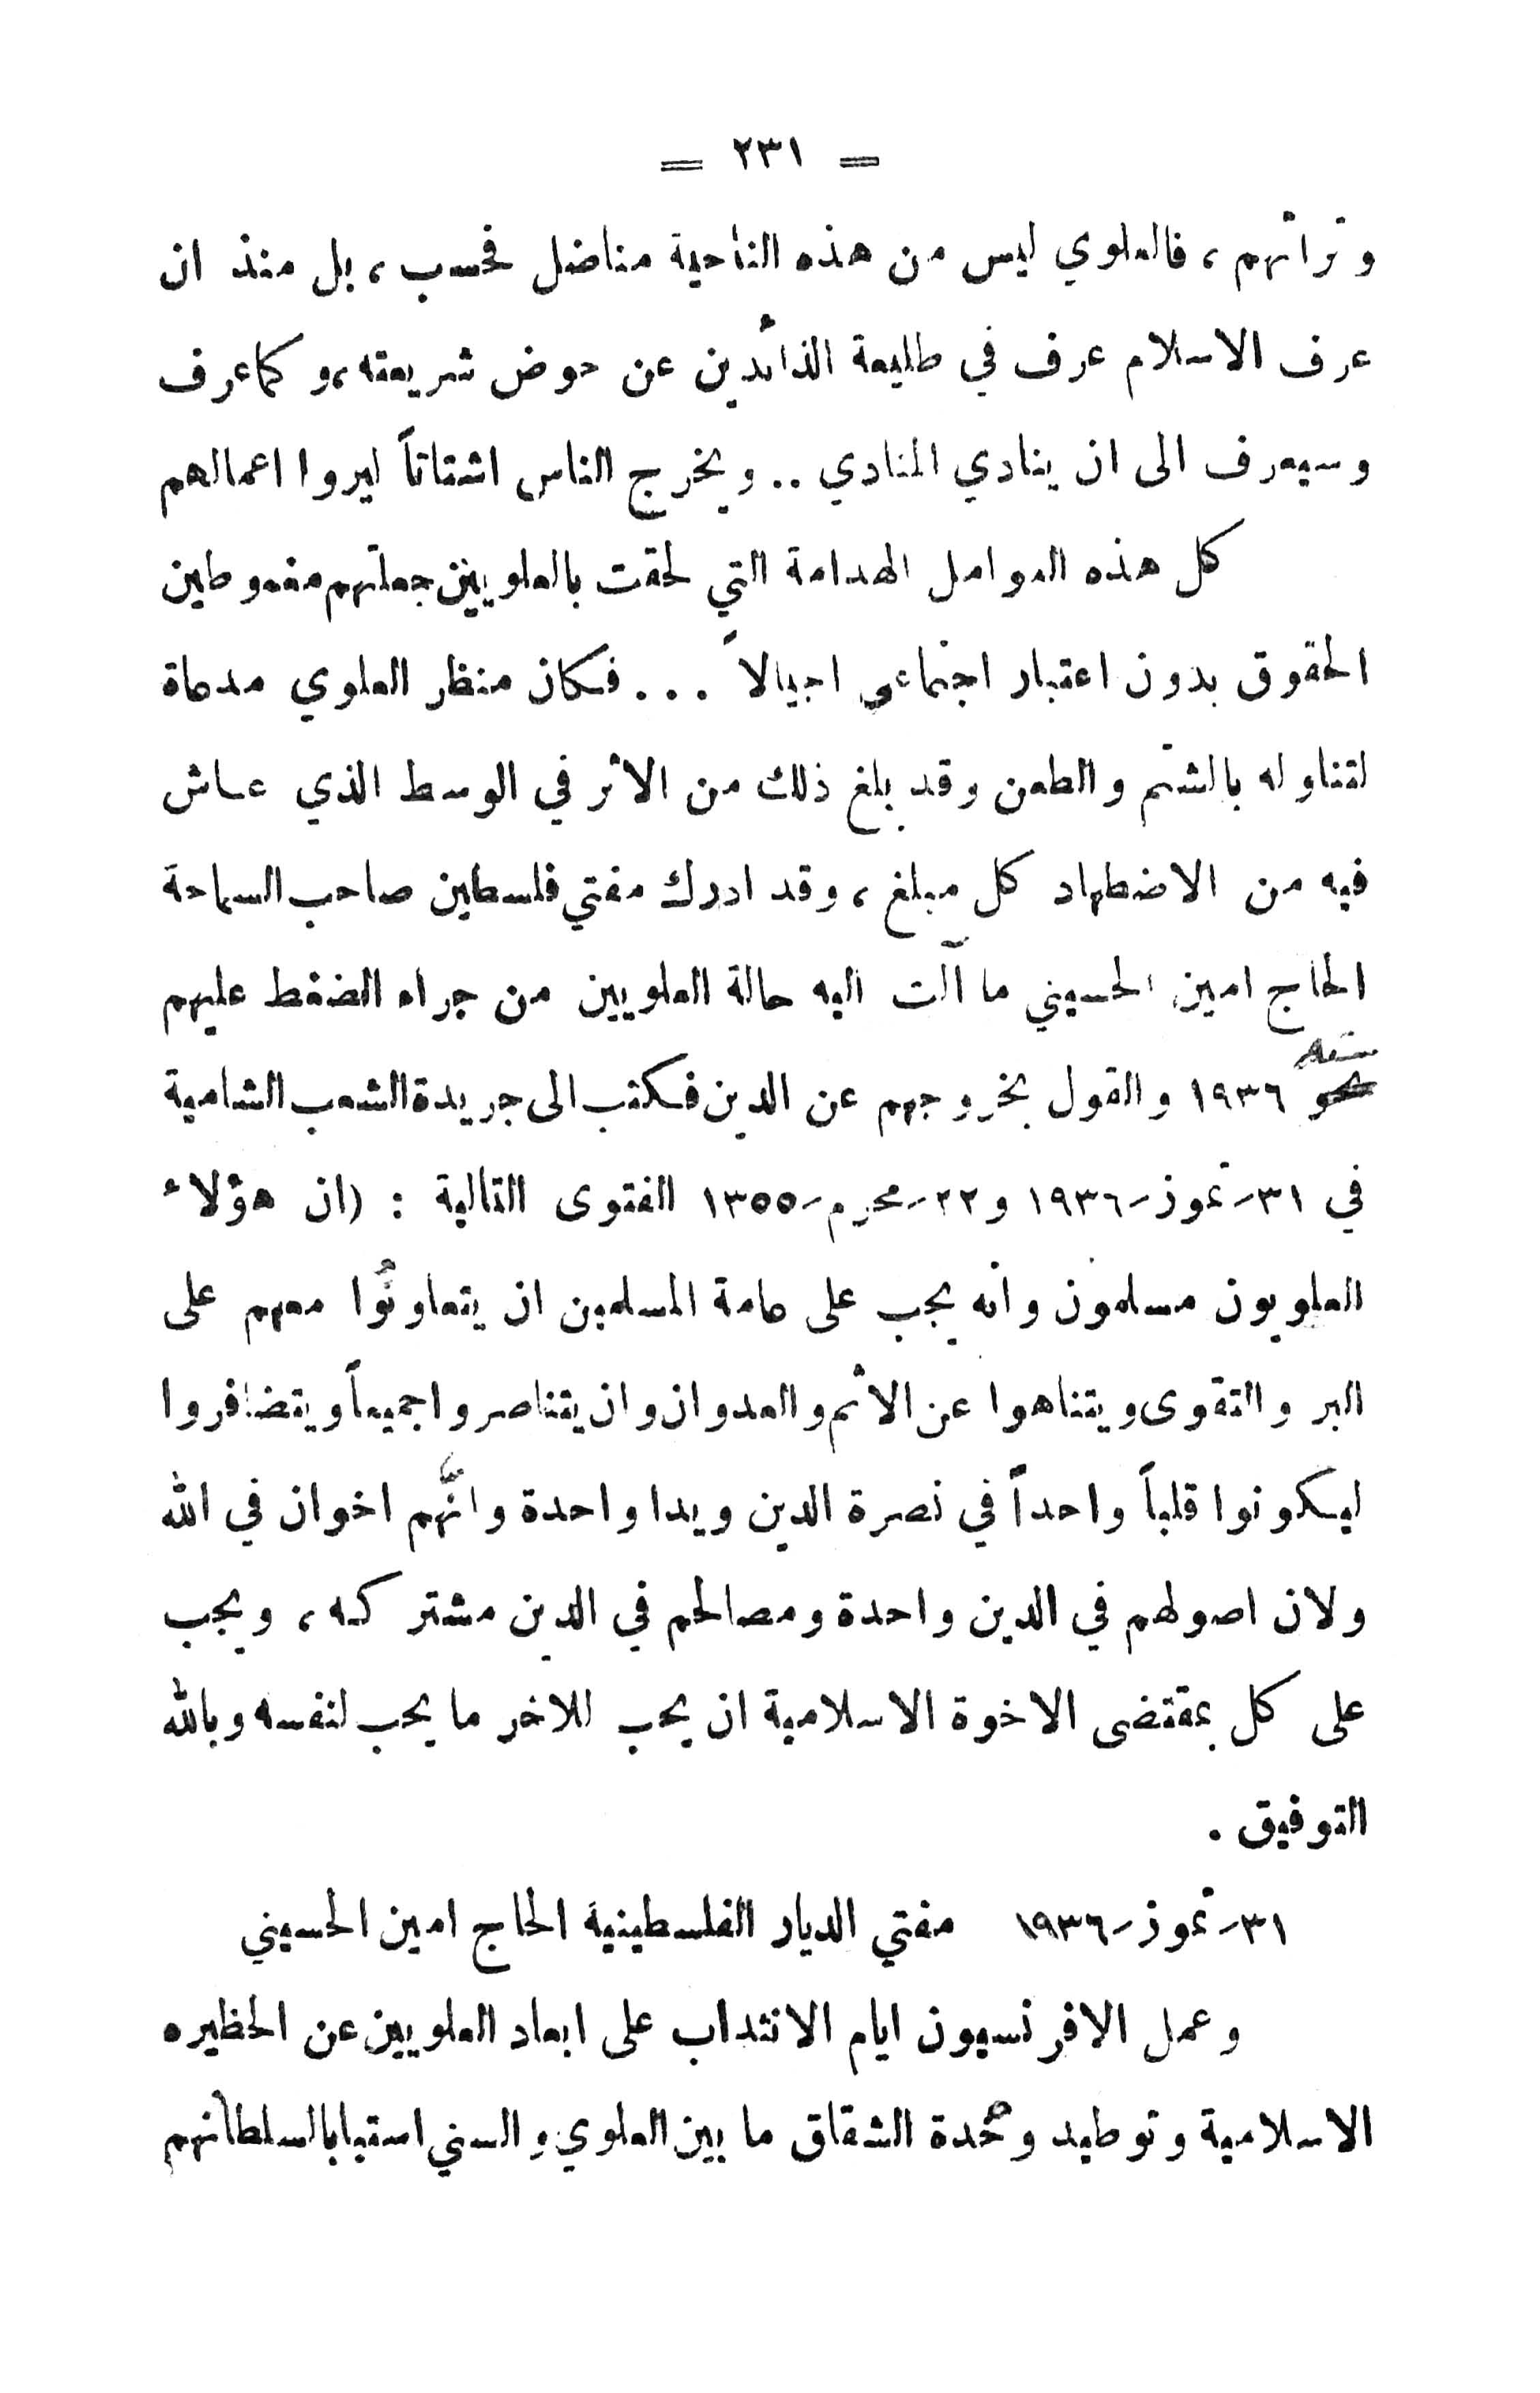 = ٢٣١ =
وتراثهم ، فالعلوي ليس من هذه الناحية مناضل فحسب ، بل منذ ان
عرف الاسلام عرف في طليعة الذائدين عن حوض شريعته ، و كما عرف
وسيعرف الى ان ينادي المنادي .. ويخرج الناس اشتاتاً ليروا اعمالهم
كل هذه العوامل الهدامة التي لحقت بالعلويين جعلتهم مغموطين
الحقوق بدون اعتبار اجتماعي اجيالاً ... فكان منظر العلوي مدعاة
لتناوله بالشتم والطعن وقد بلغ ذلك من الاثر في الوسط الذي عاش
فيه من الاضطهاد كل مبلغ ، وقد ادرك مفتي فلسطين صاحب السماحة
الحاج امين الحسيني ما آلت اليه حالة العلويين من جراء الضغط عليهم
سنة
نحو ١٩٣٦ والقول بخروجهم عن الدين فكتب الى جريدة الشعب الشامية
في ٣١-تموز-١٩٣٦ و٢٢-محرم-١٣٥٥ الفتوى التالية : (ان هؤلاء
العلويون مسلمون وانه يجب على عامة المسلمين ان يتعاونوا معهم على
البر والتقوى ويتناهوا عن الاثم والعدوان وان يتناصروا جميعاً ويتضافروا
ليكونوا قلباً واحداً في نصرة الدين ويدا واحدة وانهم اخوان في الله
ولان اصولهم في الدين واحدة ومصالحم في الدين مشتركه ، ويجب
على كل بمقتضى الاخوة الاسلامية ان يحب للاخر ما يحب لنفسه وبالله
التوفيق .
٣١-تموز-١٩٣٦ مفتي الديار الفلسطينية الحاج امين الحسيني
وعمل الافرنسيون ايام الانتداب على ابعاد العلويين عن الحظيره
الاسلامية وتوطيد وحدة الشقاق ما بين العلوي والسني استبابالسلطانهم